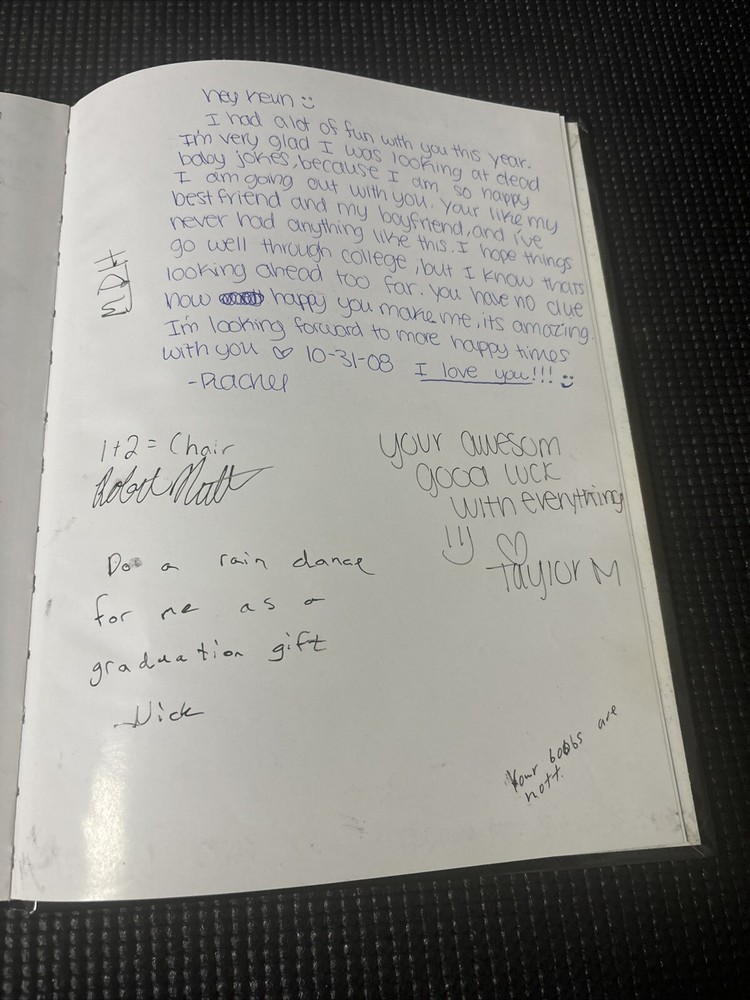 hey heun :)
I had alot of fun with you this year.
I'm very glad I was looking at dead
baby jokes, because I am so happy
I am going out with you. Your like my
best friend and my boyfriend, and i've
never had anything like this. I hope things
go well through college, but I know thats
looking ahead too far. you have no clue
how happy you make me, its amazing.
I'm looking forward to more happy times
with you ♡ 10-31-08 I love you!!! :)
-Rachel
1+2 = Chair
Robert
your awesom
good luck
with everything
!!) ♡
Taylor M
Do a rain dance
for me as a
graduation gift
-Nick
Your bobbs are
hott.